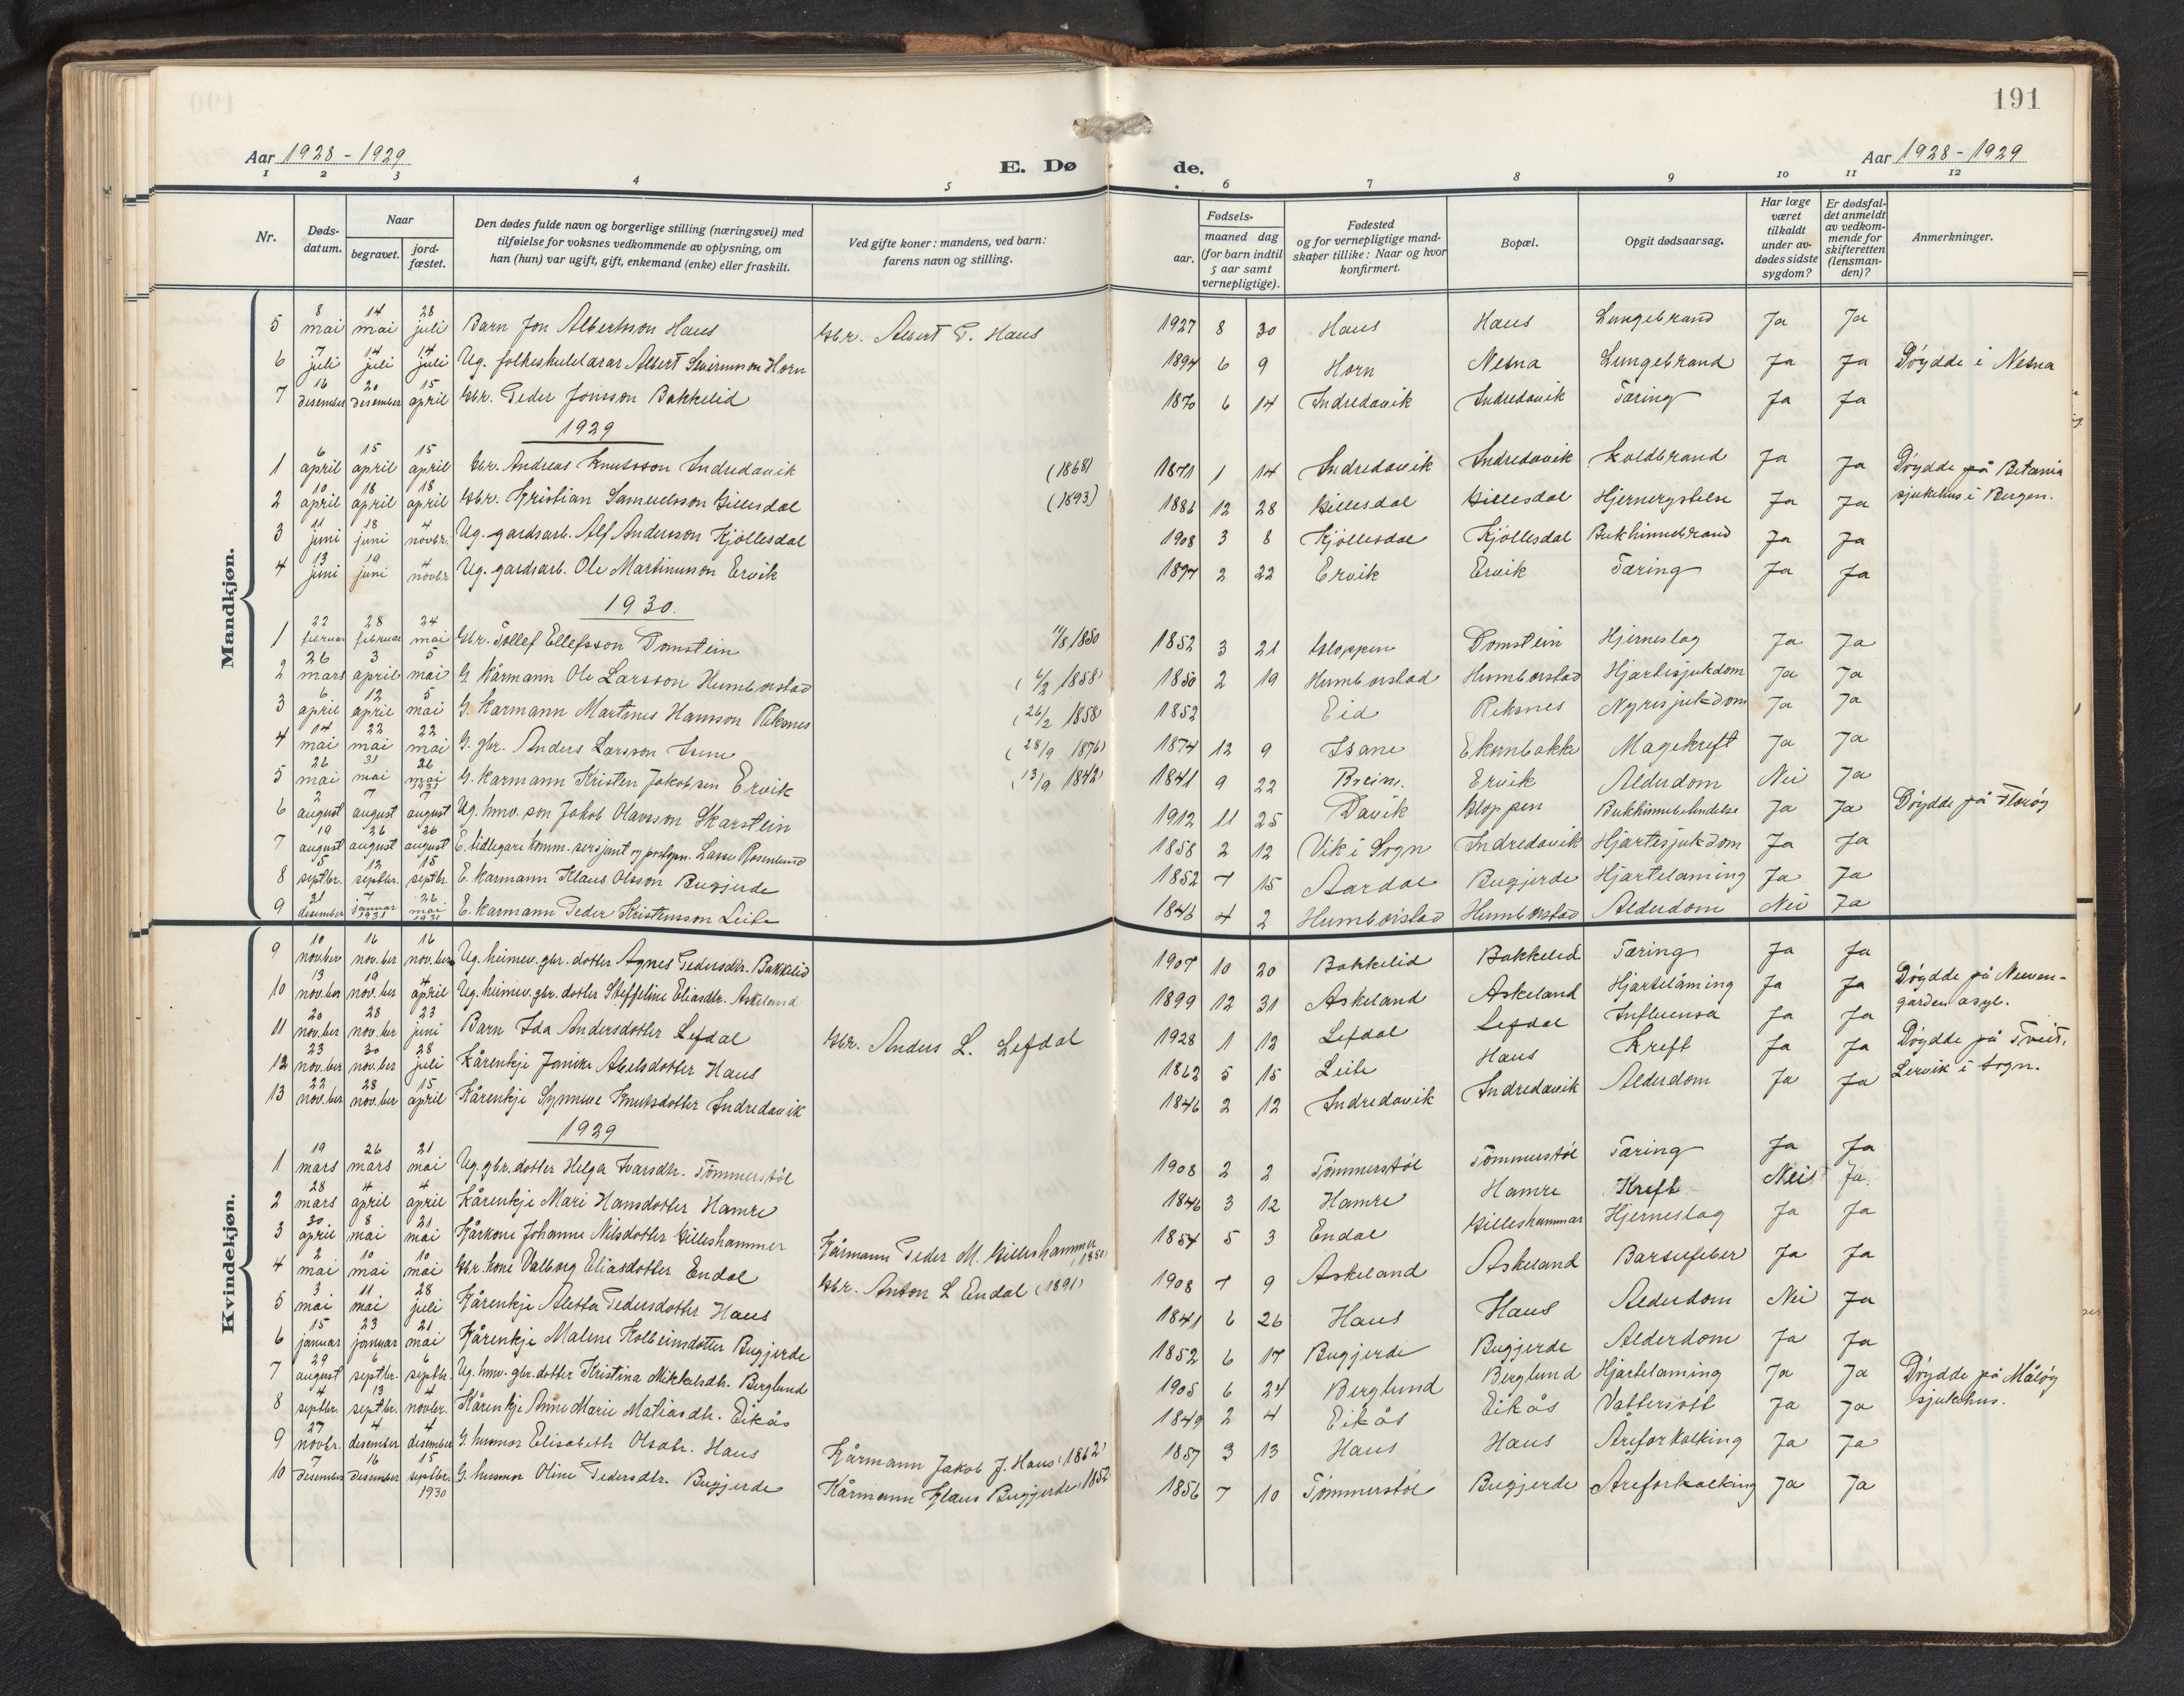 191
Aar 1928 - 1929
E. Dø
de.
Aar 1928 - 1929
1 2 3 4 5 6 7 8 9 10 11 12
Nr.
Døds-datum.
Naar
begravet.
jord-fæstet.
Den dødes fulde navn og borgerlige stilling (næringsvei) med
tilføielse for voksnes vedkommende av oplysning, om
han (hun) var ugift, gift, enkemand (enke) eller fraskilt.
Ved gifte koner: mandens, ved barn:
farens navn og stilling.
Fødsels-
aar.
maaned dag
(for barn indtil
5 aar samt
vernepligtige).
Fødested
og for vernepligtige mand-
skaper tillike: Naar og hvor
konfirmert.
Bopæl.
Opgit dødsaarsag.
Har læge
været
tilkaldt
under av-
dødes sidste
sygdom?
Er dødsfal-
det anmeldt
av vedkom-
mende for
skifteretten
(lensman-
den)?
Anmerkninger.
Mandkjøn.
5 8 mai 14 mai 28 juli Barn Jon Albertsson Haus Gbr. Albert P. Haus 1927 8 30 Haus Haus Lungebrand Ja Ja
6 7 juli 14 juli 14 juli Ug. folkeskulelærar Albert Severinsson Horn 1894 6 9 Horn Nesna Lungebrand Ja Ja Døydde i Nesna
7 16 desember 20 desember 15 april Gbr. Peder Jonsson Bakkelid 1870 6 14 Indredavik Indredavik Tæring Ja Ja
1929
1 6 april 15 april 15 april Gbr. Andreas Knutsson Indredavik (1868) 1871 1 14 Indredavik Indredavik Koldbrand Ja Ja Døydde på Betania
sjukehus i Bergen.
2 10 april 18 april 18 april Gbr. Kristian Samuelsson Gillesdal (1893) 1886 12 28 Gillesdal Gillesdal Hjernerystelse Ja Ja
3 11 juni 18 juni 4 novbr. Ug. gardsarb. Alf Andersson Kjøllesdal 1908 3 8 Kjøllesdal Kjøllesdal Bukhinnebrand Ja Ja
4 13 juni 19 juni 4 novbr Ug. gardsarb. Ole Martinusson Ervik 1897 2 22 Ervik Ervik Tæring Ja Ja
1930.
1 22 februar 28 februar 24 mai Gbr. Tollef Ellefsson Domstein 11/8 1850 1852 3 21 Gloppen Domstein Hjerneslag Ja Ja
2 26 mars 3 april 5 mai G. Kårmann Ole Larsson Humborstad 1858) 1850 2 19 Humborstad Humborstad Hjartesjukdom Ja Ja
3 6 april 12 april 5 mai G. Karmann Martines Hansson Reksnes (26/2 1858) 1852 Eid Reksnes Nyresjukdom Ja Ja
4 14 mai 22 mai 22 mai G. gbr. Anders Larsson Isene (28/9 1876) 1874 12 9 Isane Ekembakke Magekreft Ja Ja
5 26 mai 31 mai 26 mai 1931 G. Karmann Kristen Jakobsen Ervik (13/9 1842) 1841 9 22 Breim. Ervik Alderdom Nei Ja
6 2 august 7 august 7 august Ug. hmv. son Jakob Olavsson Skarstein 1912 11 25 Davik Gloppen Bukhinnebetendelse Ja Ja Døydde på Florøy
7 19 august 26 august 26 august E. tidlegare komm. sersjant og postopn. Lasse Rosenlund 1858 2 12 Vik i Sogn Indredavik Hjartesjukdom Ja Ja
8 5 septbr. 12 septbr. 15 septbr. E. Karmann Klaus Olsson Bugjerde 1852 7 15 Aardal Bugjerde Hjartelaming Ja Ja
9 21 desember 7 januar 1931 26 mai 1931 E. Karmann Peder Kristensson Leite 1846 4 2 Humborstad Humborstad Alderdom Nei Ja
Kvindekjøn.
9 10 nov.ber 16 nov.ber 16 nov.ber Ug. heimev. gbr. dotter Agnes Pedersdtr. Bakkelid 1907 10 20 Bakkelid Bakkelid Tæring Ja Ja
10 13 nov.ber 19 nov.ber 4 april Ug. heimev. gbr. dotter Steffeline Eliasdtr. Askeland 1899 12 31 Askeland Askeland Hjartelåming Ja Ja Døydde på Neeven-
garden asyl.
11 20 nov.ber 28 nov.ber 23 juni Barn Ida Andersdotter Lefdal Gbr. Anders L. Lefdal 1928 1 12 Lefdal Lefdal Influensa Ja Ja
12 23 nov.ber 30 nov.ber 28 juli Kårenkje Janike Abelsdotter Haus 1862 5 15 Leite Haus Kreft Ja Ja Døydde på Tveit,
Lervik i Sogn.
13 22 nov.ber 28 nov.ber 15 april Kårenkje Synneve Knutsdotter Indredavik 1846 2 12 Indredavik Indredavik Alderdom Ja Ja
1929
1 19 mars 26 mars 21 mai Ug. gbr. dotter Helga Ivarsdtr. Tømmerstøl 1908 2 2 Tømmerstøl Tømmerstøl Tæring Ja Ja
2 28 mars 4 april 4 april Kårenkje Mari Hansdotter Hamre 1846 3 12 Hamre Hamre Kreft Nei Ja.
3 30 april 8 mai 21 mai Kårkone Johanne Nilsdotter Gilleshammer Kårmann Peder M. Gilleshammer (1850) 1854 5 3 Endal Gilleshammar Hjerneslag Ja Ja
4 2 mai 10 mai 10 mai Gbr. kone Valborg Eliasdotter Endal Gbr. Anton L Endal (1891) 1908 7 9 Askeland Askeland Barselfeber Ja Ja
5 3 mai 11 mai 28 juli Kårenkje Aletta Pedersdotter Haus 1841 6 26 Haus Haus Alderdom Nei Ja
6 15 januar 23 januar 21 mai Kårenkje Malene Kolbeinsdotter Bugjerde 1852 6 17 Bugjerde Bugjerde Alderdom Ja Ja
7 29 august 6 septbr. 6 septbr. Ug. hmv. gbr. dotter Kristina Mikkelsdtr. Berglund 1905 6 24 Berglund Berglund Hjartelaming Ja Ja Døydde på Måløy
sjukehus.
8 4 septbr. 13 septbr. 4 novbr. Kårenkje Anne Marie Matiasdtr. Eikås 1849 2 4 Eikås Eikås Vattersott Ja Ja
9 27 novbr. 4 desember 4 desember G. husmor Elisabeth Olsdtr. Haus Kårmann Jakob J. Haus (1862) 1857 3 13 Haus Haus Åreforkalking Ja Ja
10 7 desember 16 desember 15 septbr. 1930 G. husmor Oline Pedersdtr. Bugjerde Kårmann Klaus Bugjerde, 1852 1856 7 10 Tømmerstøl Bugjerde Åreforkalking Ja Ja